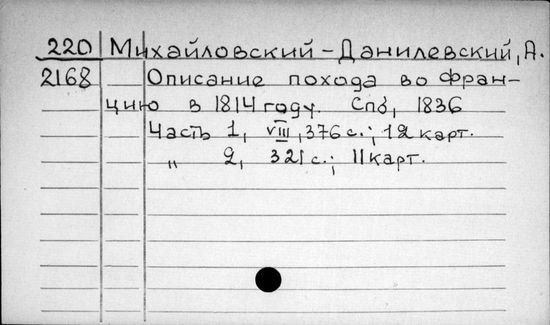 220 Михайловский-Данилевский, А.
2168 Описание похода во Фран-
цию в 1814 году. Спб, 1836
Часть 1, VIII, 376 с.; 12 карт.
" 2, 321 с.; 11 карт.